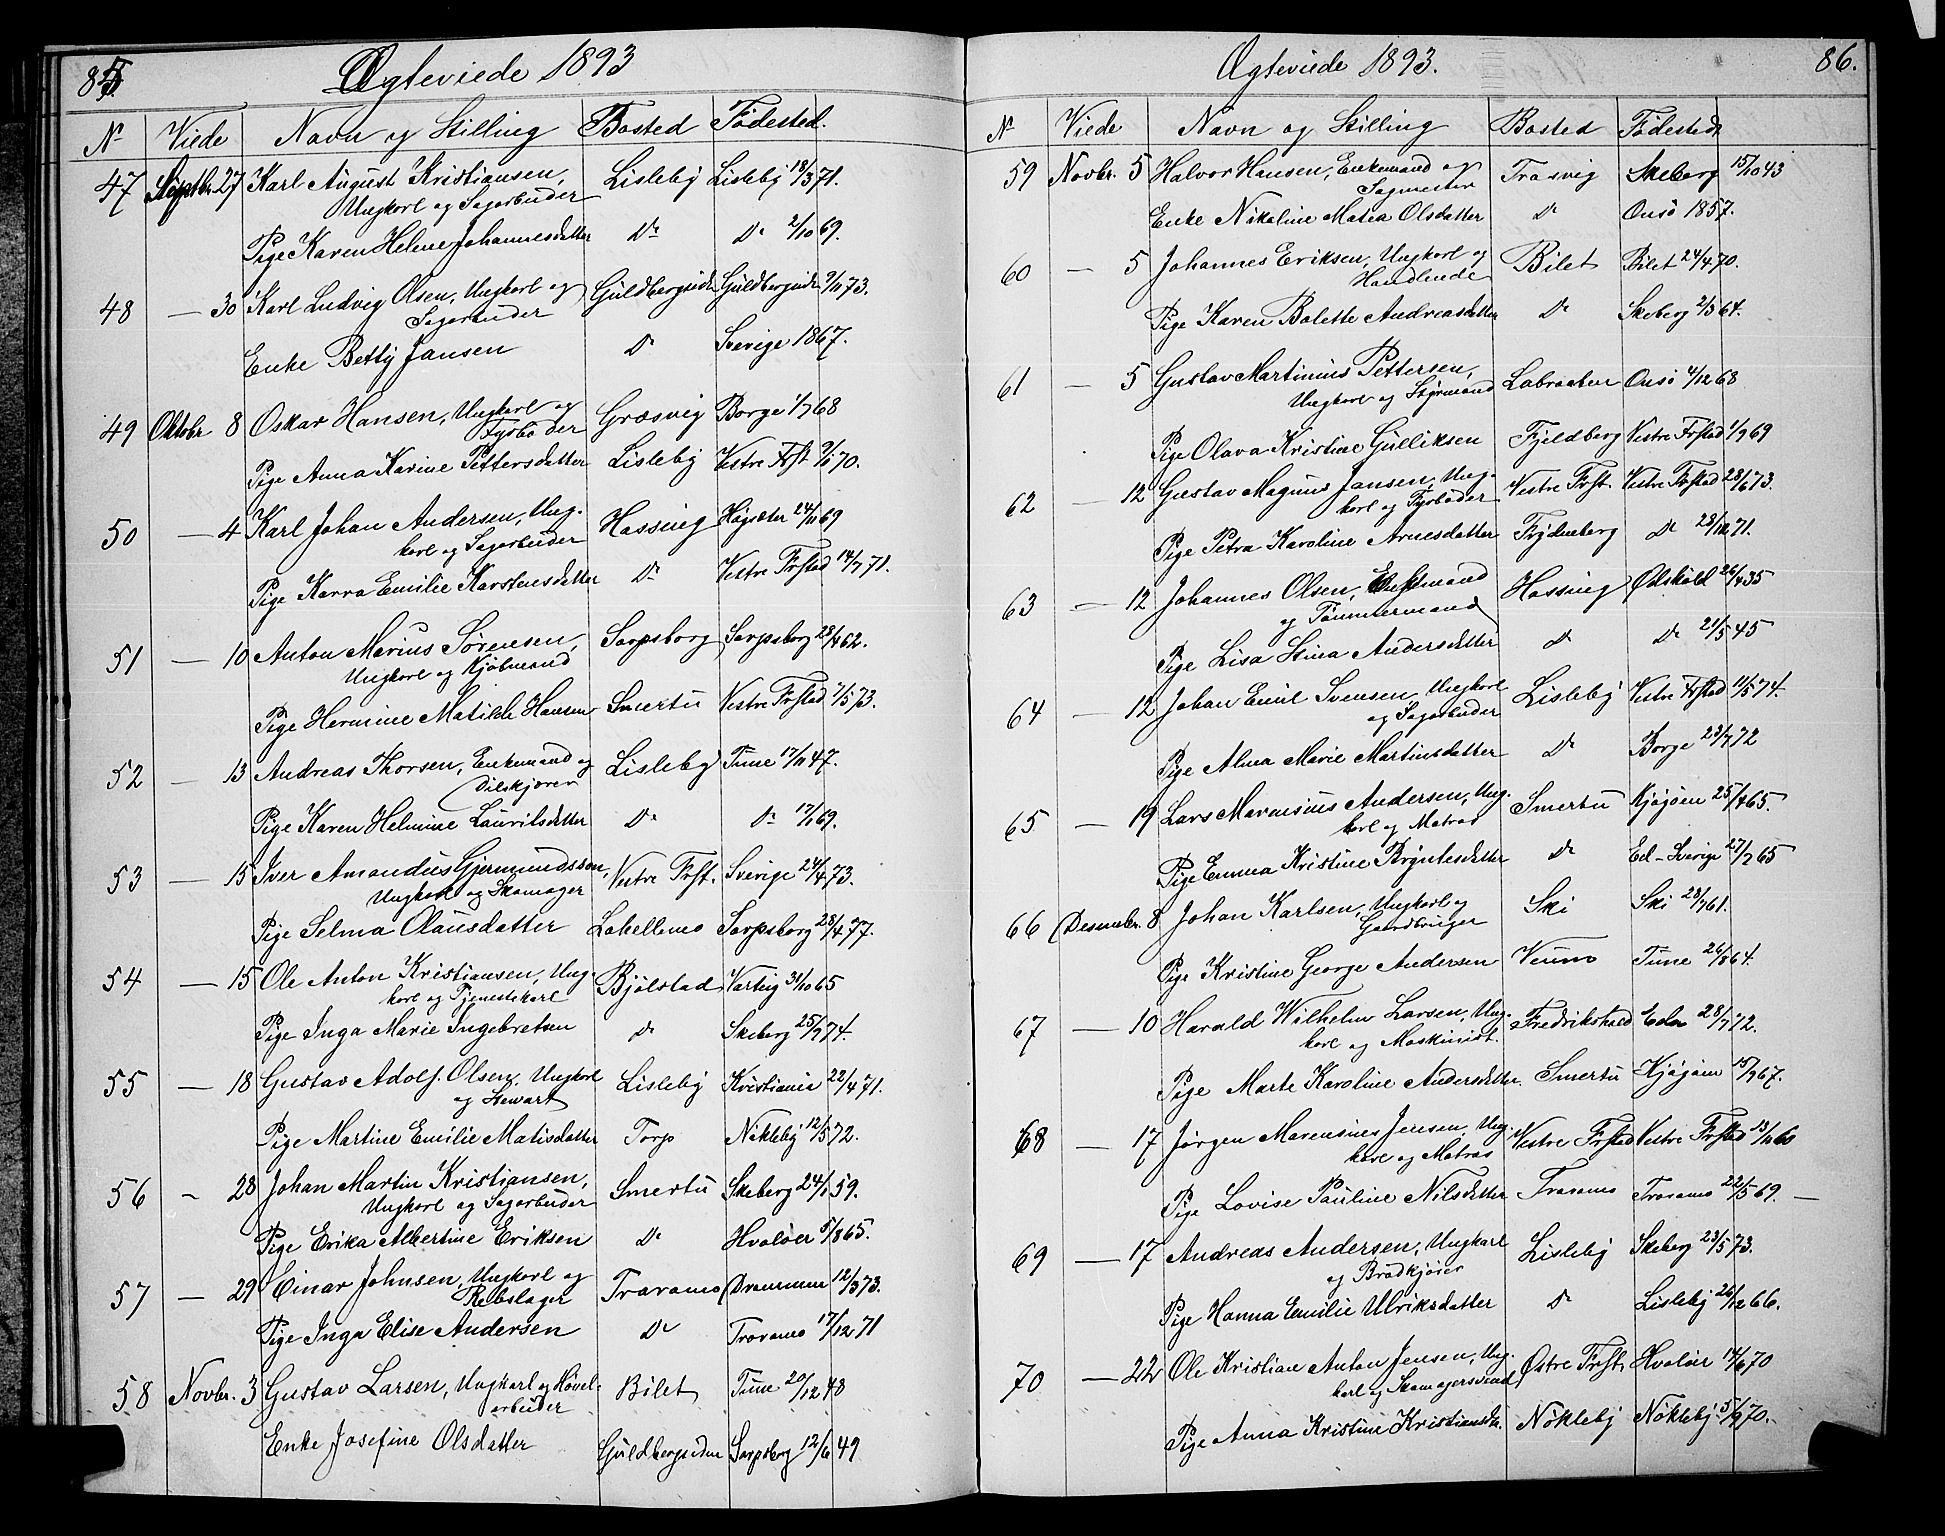 85.
Ægteviede 1893
No Viede Navn og Stilling Bosted Fødested.
47 Septbr. 27 Karl August Kristiansen, Lisleby Lisleby 18/3 71.
Ungkarl og Sagarbeider
Pige Karen Helene Johannesdatter Do Do 2/10 69.
48 — 30 Karl Ludvig Olsen, Ungkarl og Guldbergsiden Guldbergsiden 9/11 73.
Sagarbeider
Enke Betty Jansen Do Sverige 1867.
49 Oktobr 8 Oskar Hansen, Ungkarl og Græsvig Borge 1/7 68
Fyrbøder
Pige Anna Karine Pettersdatter Lisleby Vestre Frst 9/1 70.
50 — 4 Karl Johan Andersen, Ung- Hassing Høysæter 24/11 69
karl og Sagarbeider
Pige Karra Emilie Karstensdatter Do Vestre Frstad 14/7 71.
51 — 10 Anton Marius Sørensen, Sarpsborg Sarpsborg 28/4 62.
Ungkarl og Kjøbmand
Pige Hermine Matilde Hansen Smertu Vestre Frstad 7/5 73.
52 — 13 Andreas Thorsen, Enkemand og Lisleby Tune 17/11 47.
Ølskjører
Pige Karen Helmine Lauritsdatter Do Do 17/1 69.
53 — 15 Iver Amandus Gjermundssen, Vestre Frst. Sverige 24/4 73.
Ungkarl og Skomager
Pige Selma Olausdatter Labellemo Sarpsborg 28/4 77.
54 — 15 Ole Anton Kristiansen, Ung- Bjølstad Varteig 31/10 65
karl og Tjenestekarl
Pige Inga Marie Ingebretsen Do Skeberg 25/9 74.
55 — 18 Gustav Adolf Olsen, Ungkarl Lisleby Kristiania 22/4 71.
og Stewart
Pige Martine Emilie Matisdatter Torp Nøkleby 12/5 72.
56 — 28 Johan Martin Kristiansen, Smertu Skeberg 24/1 59.
Ungkarl og Sagarbeider
Pige Erika Albertine Eriksen Do Hvaløer 5/8 65.
57 — 29 Einar Johnsen, Ungkarl og Traramo Drammen 12/3 73.
Rebslager
Pige Inga Elise Andersen Do Traramo 17/12 71
58 Novbr. 3 Gustav Larsen, Ungkarl og Høvel- Bilet Tune 20/12 48
arbeider
Enke Josefine Olsdatter Guldbergsiden Sarpsborg 12/6 49
86.
Ægteviede 1893.
No Viede Navn og Stilling Bosted Fødested
59 Novbr. 5 Halvor Hansen, Enkemand og Trosvig Skeberg 15/10 43
Sagmester
Enke Nikoline Matea Olsdatter Do Onsø 1857.
60 — 5 Johannes Eriksen, Ungkarl og Bilet Bilet 24/4 70.
Handlende
Pige Karen Bolette Andreasdatter Do Skeberg 2/3 64.
61 — 5 Gustav Martinius Pettersen, Labraaten Onsø 4/12 68
Ungkarl og Styrmand
Pige Olava Kristine Gulliksen Fjeldberg Vestre Frstad 1/9 69
62 — 12 Gustav Magnus Jansen, Ung- Vestre Frst. Vestre Frstad 28/6 73.
karl og Fyrbøder
Pige Petra Karoline Arnesdatter Frydenberg Do 28/12 71.
63 — 12 Johannes Olsen, Enkemand Hassing Ødskøld 26/4 35
og Tømmermand
Pige Lisa Stina Andersdatter Do Do 21/5 45
64 — 12 Johan Emil Svensen, Ungkarl Lisleby Vestre Frstad 11/5 74.
og Sagarbeider
Pige Alma Marie Martinsdatter Do Borge 23/7 72
65 — 19 Lars Marensius Andersen, Ung- Smertu Kjøgøen 25/4 65.
karl og Matros
Pige Emma Kristine Bryntesdatter Do Ed-Sverige 27/7 65
66 Desember. 8 Johan Karlsen, Ungkarl og Ski Ski 28/7 61.
Gaardbruger
Pige Kristine George Andersen Veum Tune 26/8 64.
67 — 10 Harald Wilhelm Larsen, Ung- Fredrikshald Eda 28/7 72.
karl og Maskinist.
Pige Marte Karoline Andersdatter. Smertu Kjøgøen 15/9 67.
68 — 17 Jørgen Marensius Jensen, Ung- Vestre Frstad Vestre Frstad 13/11 60
karl og Matros
Pige Lovise Pauline Nilsdatter Traramo Traramo 22/5 69. —
69 — 17 Andreas Andersen, Ungkarl Lisleby Skeberg 23/5 73.
og Brødkjører
Pige Hanna Emilie Ulriksdatter Do Lisleby 26/12 66.
70 — 22 Ole Kristian Anton Jensen, Ung- Østre Frst. Hvaløer 14/6 70
karl og Skomagersvend
Pige Anna Kristine Kristiansdtr. Nøkleby Nøkleby 5/9 70.